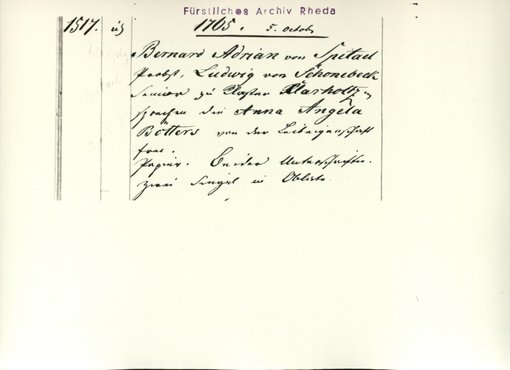 Fürstliches Archiv Rheda
1517. 1705. 5. Octobr
Bernard Adrian von Spital
Probst, Ludwig von Schonebeck
Senior zu Kloster Klarholtz
sprechen die Anna Angela
Bötters von der Leibeigenschaft
frei.
Papier. Beider Unterschriften.
zwei Siegel in Oblate.